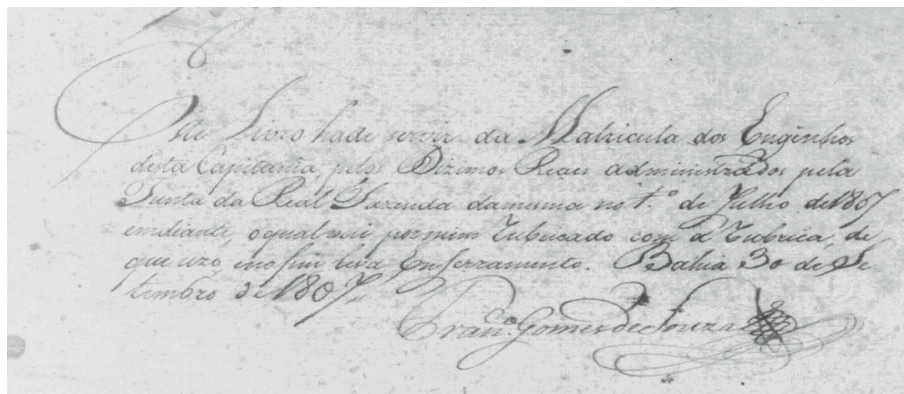 Este Livro hade servir da Matricula dos Enginhos
desta Capitania, pelos Dizimos Reaes administrados pela
Junta da Real Fazenda da mesma no 1.º de Julho de 1807
emdiante, o qual vai por mim Rubricado com a Rubrica, de
que uzo, e no fim leva Enserramento. Bahia 30 de Se
tembro de 1807
Fran.co Gomes de Souza